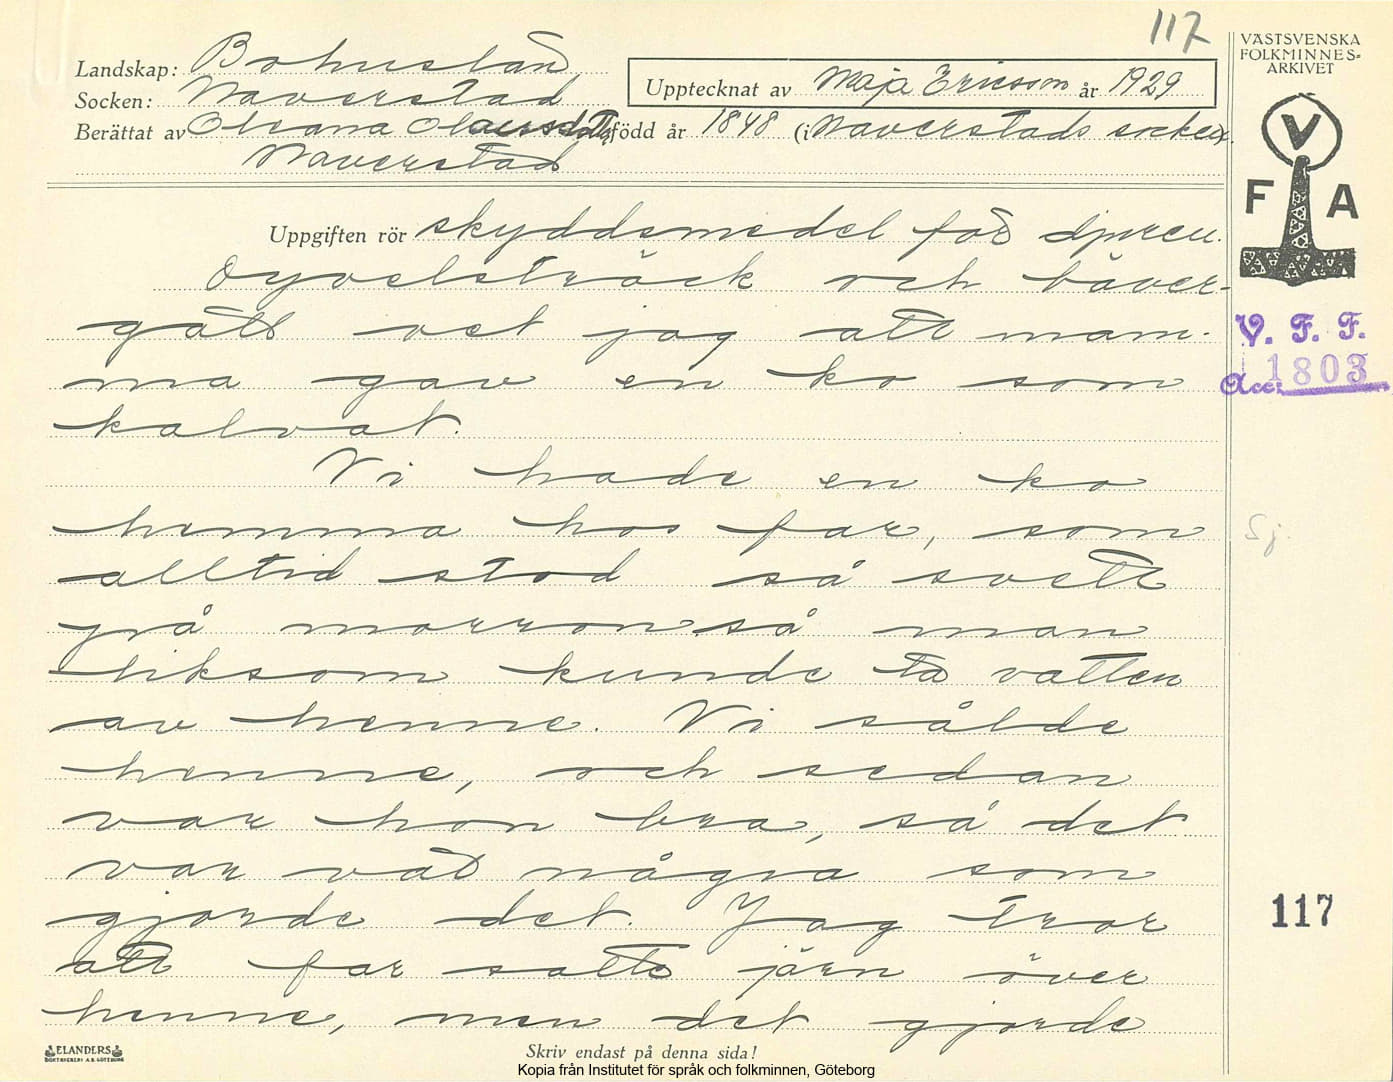 117
VÄSTSVENSKA
FOLKMINNES=
ARKIVET
Landskap: Bohuslän,
Socken: Naverstad
Upptecknat av Maja Ericsson år 1929
Berättat av Oleana Olausdotter, född år 1848 (i Naverstads socken.
Naverstad
F V A
Uppgiften rör skyddsmedel för djuren.
Dyvelsträck och bäver-
gäll vet jag att mam-
ma gav en ko som
kalvat.
Vi hade en ko
hemma hos far, som
alltid stod så svett
på morron så man
liksom kunde ta vatten
av henne. Vi sålde
henne, och sedan
var hon bra, så det
var väl några som
gjorde det. Jag tror
att far satte järn över
henne, men det gjorde
V. F. F.
Acc. 1803
Sj.
117
ELANDERS
BOKTRYCKERI A.B. GÖTEBORG
Skriv endast på denna sida!
Kopia från Institutet för språk och folkminnen, Göteborg